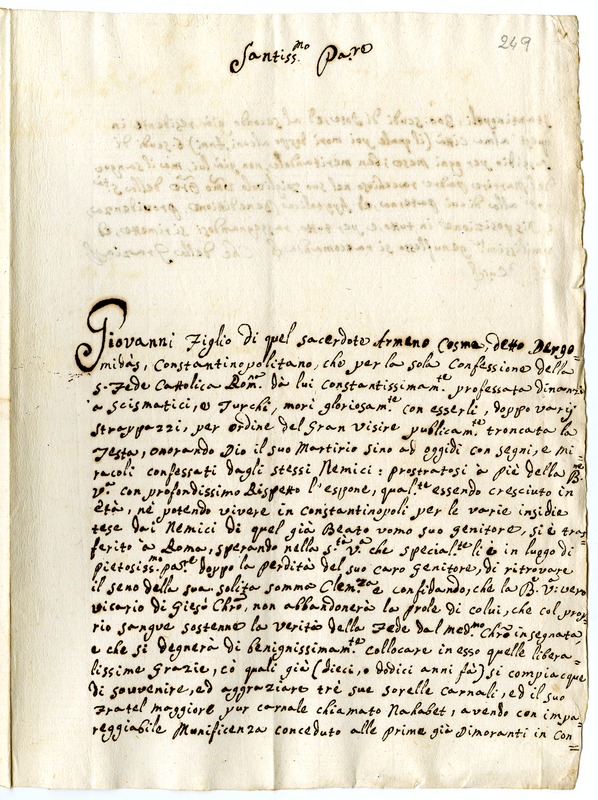 249
Santiss.mo Pa.re
Giovanni Figlio di quel sacerdote Armeno Cosma, detto Dergo=
midàs, Constantinopolitano, che per la sola Confessione della
S. Fede Cattolica Rom.na dà lui constantissimam.te professata dinanti
a scismatici, e Turchi, morì gloriosam.te con esserli, doppo varij
strappazzi, per ordine del Gran Visire publicam.te troncata la
Testa, onorando Dio il suo Martirio sino ad oggidi con segni, e mi=
racoli confessati dagli stessi Nemici: prostratosi a piè della B.ne
V.a con profondissimo Rispetto l'espone, qual.te essendo cresciuto in
età, nè potendo vivere in Constantinopoli per le varie insidie
tese dai Nemici di quel già Beato vomo suo genitore, si è tras=
ferito à Roma, sperando nella S.tà V.a che special.te li è in luogo di
pietosiss.mo pa.re doppo la perdita del suo caro genitore, di ritrovare
il seno della sua solita somma Clem.za e confidando, che la B. V.a vero
vicario di Giesò Chro, non abbandonerà la prole di colui, che col prop
rio sangue sostenne la verità della Fede dal med.mo Chro insegnata,
e che si degnerà di benignissimam.te collocare in esso quelle libera=
lissime Grazie, cò quali già (dieci, o dodici anni fà) si compiacque
di souvenire, ed aggraziare trè sue sorelle carnali, ed il suo
Fratel maggiore pur carnale chiamato Nahabet, avendo con impa=
reggiabile Munificenza conceduto alle prime già Dimoranti in Con
=